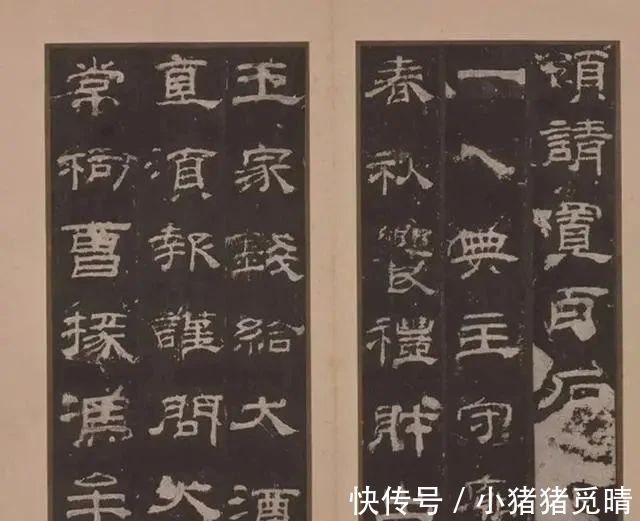 領請置百石
一人典主守廟
春秋饗禮財出
王家錢給大酒
直須報謹問大
常祠曹掾馮牟
快传号 / 小猪猪觅晴